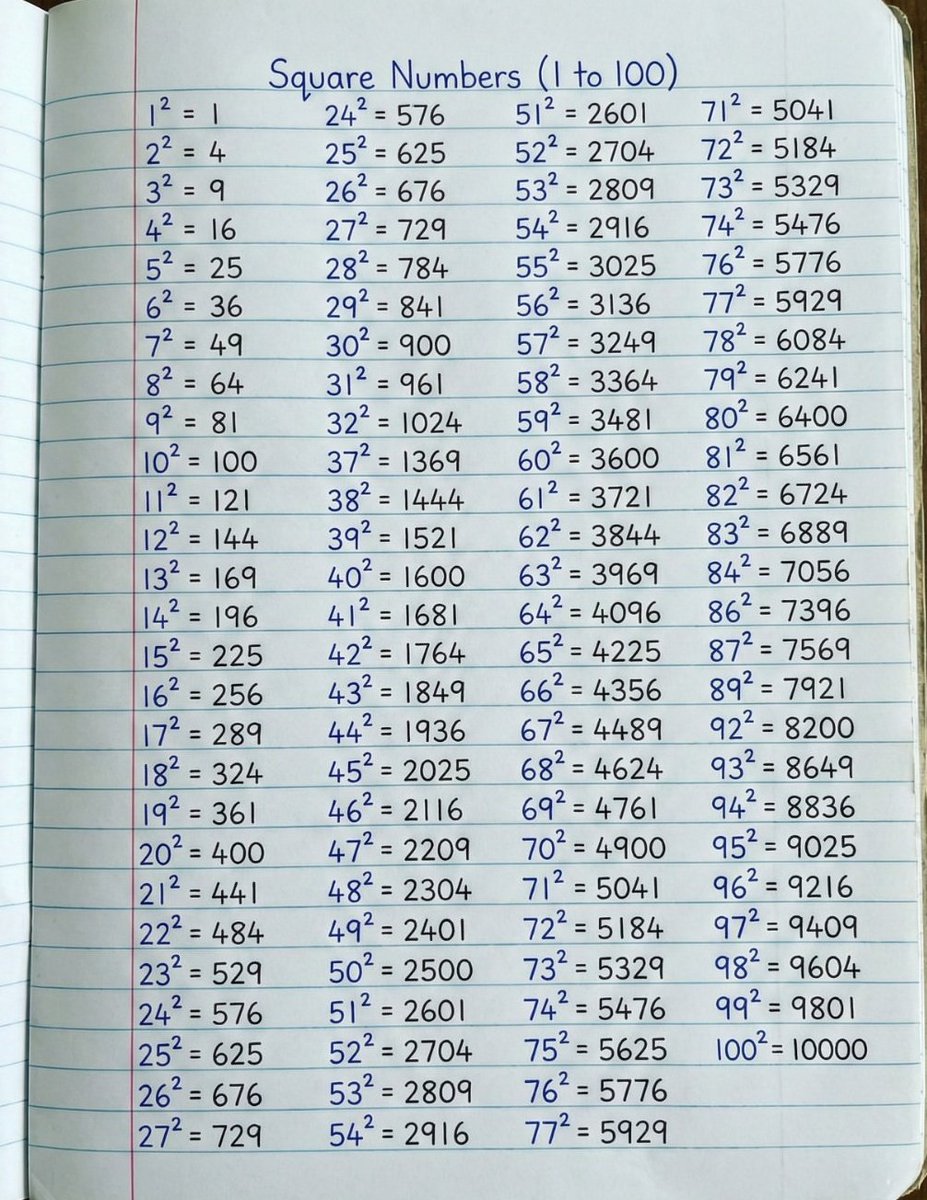 Square Numbers (1 to 100)
1² = 1
2² = 4
3² = 9
4² = 16
5² = 25
6² = 36
7² = 49
8² = 64
9² = 81
10² = 100
11² = 121
12² = 144
13² = 169
14² = 196
15² = 225
16² = 256
17² = 289
18² = 324
19² = 361
20² = 400
21² = 441
22² = 484
23² = 529
24² = 576
25² = 625
26² = 676
27² = 729
24² = 576
25² = 625
26² = 676
27² = 729
28² = 784
29² = 841
30² = 900
31² = 961
32² = 1024
37² = 1369
38² = 1444
39² = 1521
40² = 1600
41² = 1681
42² = 1764
43² = 1849
44² = 1936
45² = 2025
46² = 2116
47² = 2209
48² = 2304
49² = 2401
50² = 2500
51² = 2601
52² = 2704
53² = 2809
54² = 2916
51² = 2601
52² = 2704
53² = 2809
54² = 2916
55² = 3025
56² = 3136
57² = 3249
58² = 3364
59² = 3481
60² = 3600
61² = 3721
62² = 3844
63² = 3969
64² = 4096
65² = 4225
66² = 4356
67² = 4489
68² = 4624
69² = 4761
70² = 4900
71² = 5041
72² = 5184
73² = 5329
74² = 5476
75² = 5625
76² = 5776
77² = 5929
71² = 5041
72² = 5184
73² = 5329
74² = 5476
76² = 5776
77² = 5929
78² = 6084
79² = 6241
80² = 6400
81² = 6561
82² = 6724
83² = 6889
84² = 7056
86² = 7396
87² = 7569
89² = 7921
92² = 8200
93² = 8649
94² = 8836
95² = 9025
96² = 9216
97² = 9409
98² = 9604
99² = 9801
100² = 10000